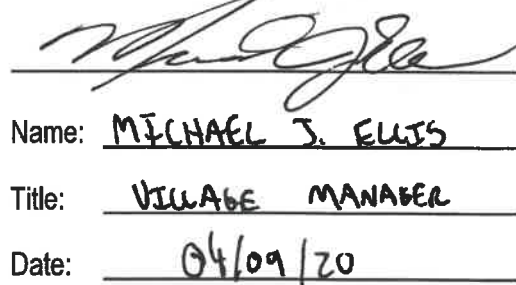 Name: MICHAEL J. ELLIS
Title: VILLAGE MANAGER
Date: 04/09/20